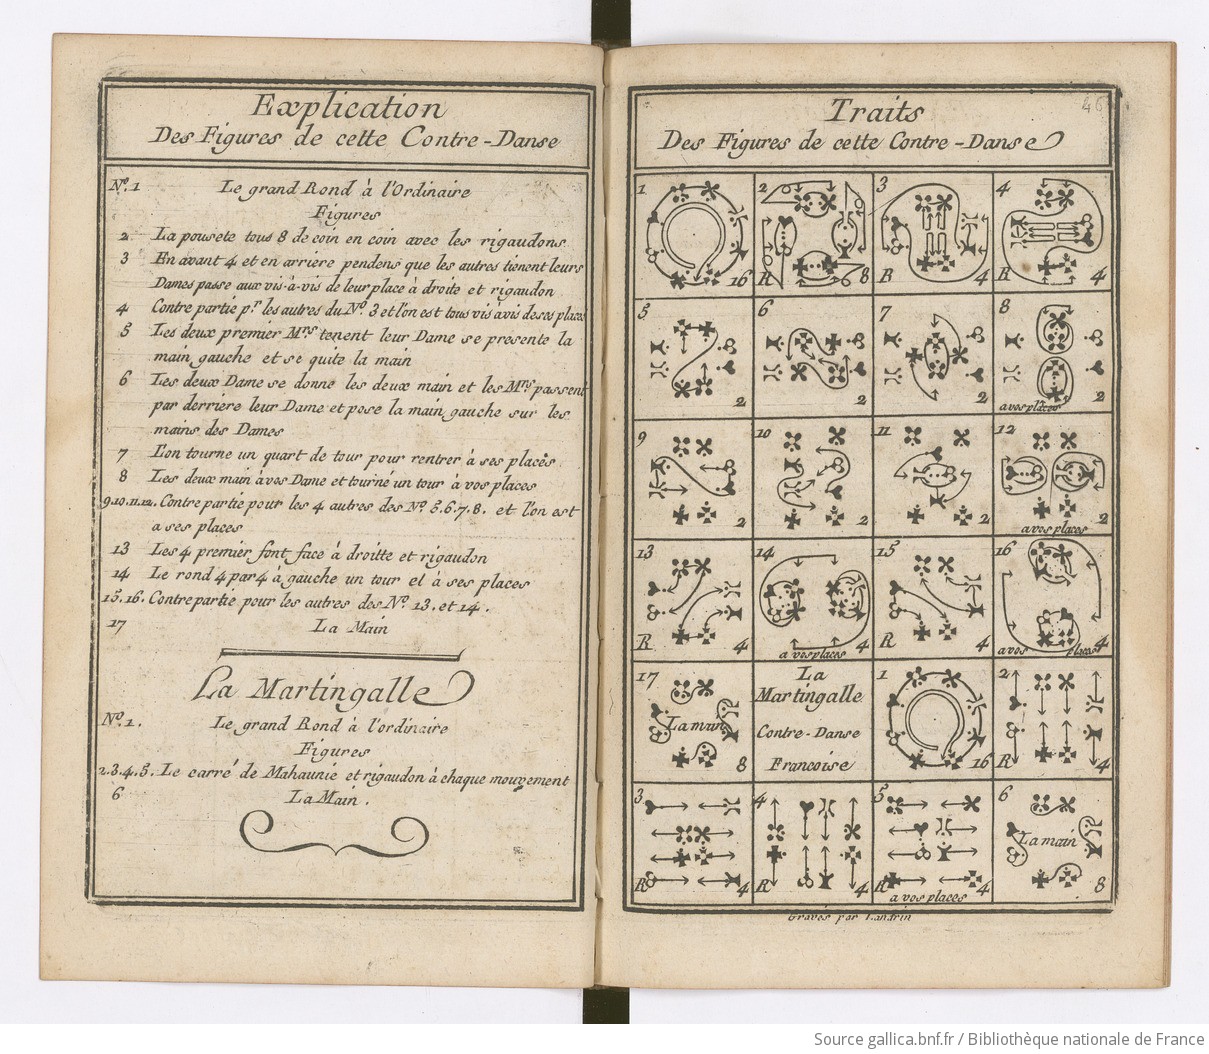 Explication
Des Figures de cette Contre-Danse
No. 1 Le grand Rond à l'Ordinaire
Figures
2 La pousete tous 8 de coin en coin avec les rigaudons.
3 En avant 4 et en arriere pendens que les autres tienent leurs
Dames passe aux vis-à-vis de leur place à droite et rigaudon.
4 Contre partie pr. les autres du No. 3 et l'on est tous vis à vis de ses places
5 Les deux premier Mrs tenent leur Dame se presente la
main gauche et se quite la main
6 Les deux Dame se donne les deux main et les Mrs passent
par derriere leur Dame et pose la main gauche sur les
mains des Dames
7 L'on tourne un quart de tour pour rentrer à ses places.
8 Les deux main à vos Dame et tourné un tour à vos places
9.10.11.12. Contre partie pour les 4 autres des No. 5.6.7.8. et l'on est
a ses places
13 Les 4 premier font face à droitte et rigaudon
14 Le rond 4 par 4 à gauche un tour et à ses places
15.16. Contre partie pour les autres des No. 13. et 14.
17 La Main
La Martingalle
No. 1. Le grand Rond à l'ordinaire
Figures
2.3.4.5. Le carré de Mahaunie et rigaudon à chaque mouvement
6 La Main.
46
Traits
Des Figures de cette Contre-Danse
1 16
2 R 8
3 R 4
4 R 4
5 2
6 2
7 2
8 a vos places 2
9 2
10 2
11 2
12 a vos places 2
13 R 4
14 a vos places 4
15 R 4
16 a vos places 4
17 La main 8
La
Martingalle
Contre-Danse
Francoise
1 16
2 R 4
3 R 4
4 R 4
5 R 4 a vos places
6 La main 8
Gravés par Landrin
Source gallica.bnf.fr / Bibliothèque nationale de France